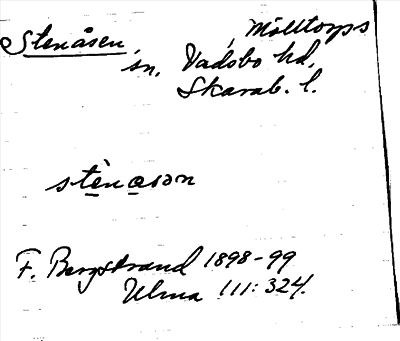 Stenåsen, Mölltorps
sn, Vadsbo hd,
Skarab. l.
stènason
F. Bergstrand 1898-99
Ulma 111: 324.